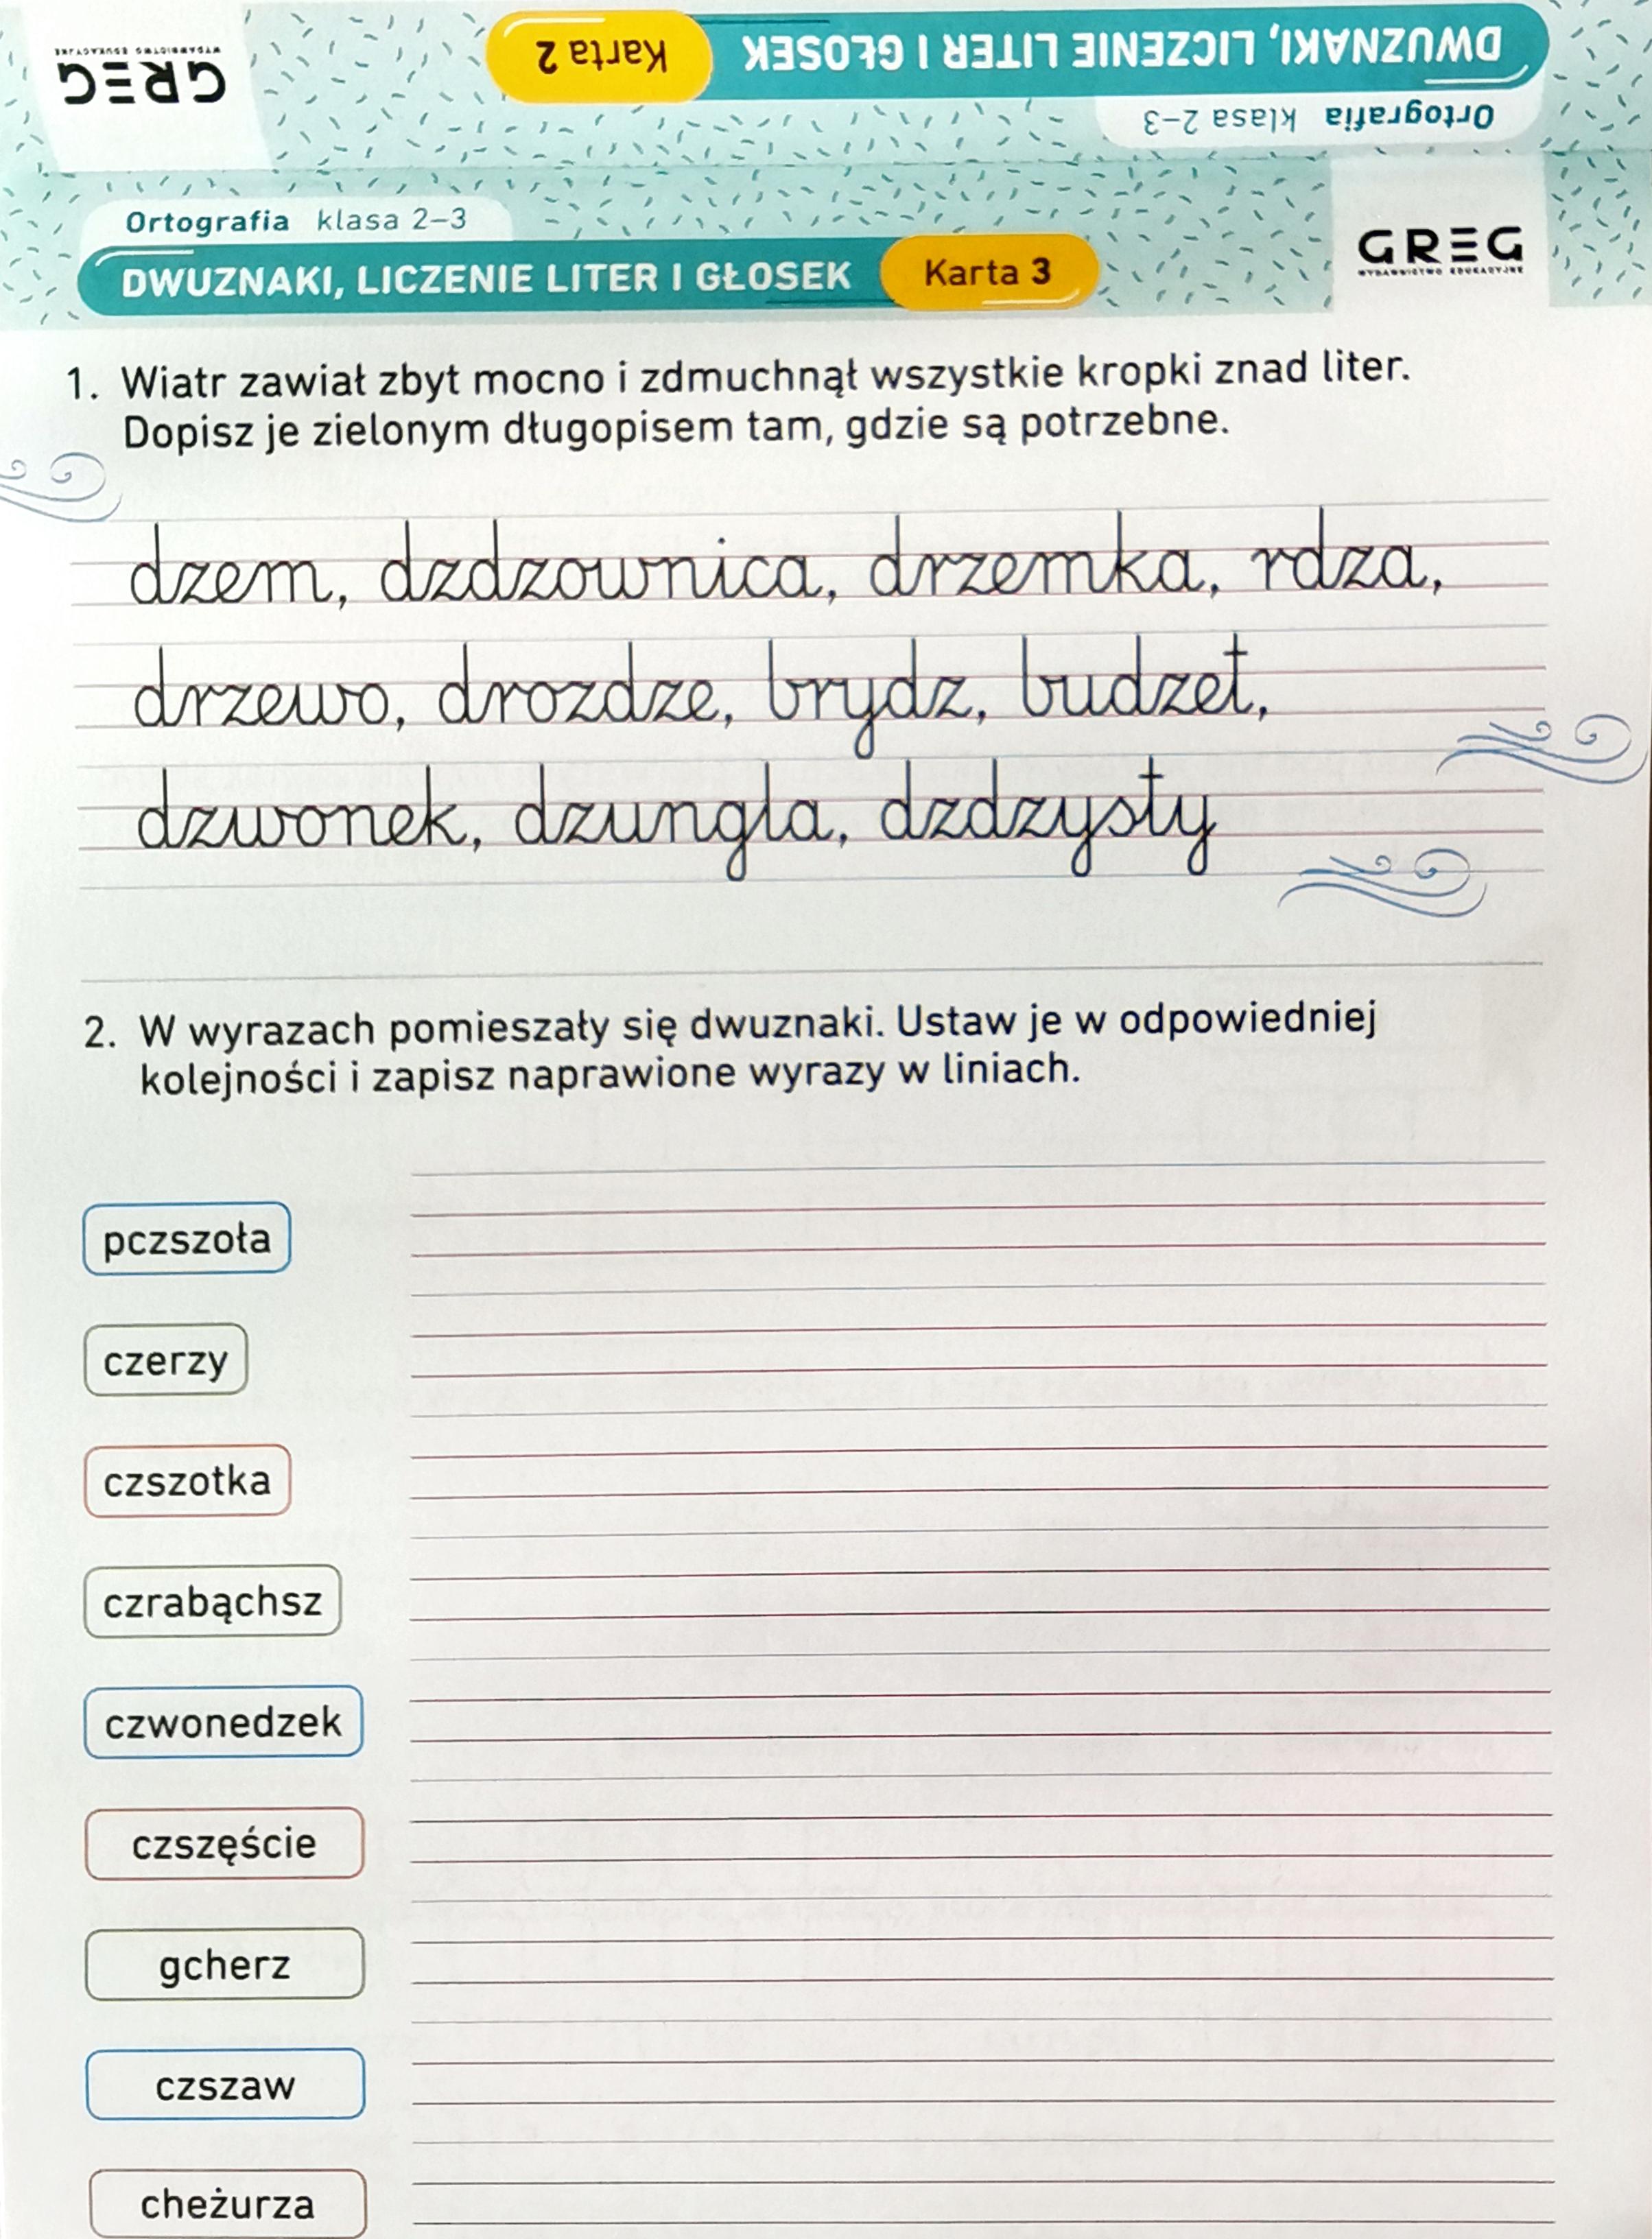 DWUZNAKI, LICZENIE LITER I GŁOSEK Karta 2
GREG
WYDAWNICTWO EDUKACYJNE
Ortografia klasa 2–3
Ortografia klasa 2–3
DWUZNAKI, LICZENIE LITER I GŁOSEK Karta 3
GREG
WYDAWNICTWO EDUKACYJNE
1. Wiatr zawiał zbyt mocno i zdmuchnął wszystkie kropki znad liter.
Dopisz je zielonym długopisem tam, gdzie są potrzebne.
dzem, dzdzownica, drzemka, rdza,
drzewo, drozdze, brydz, budzet,
dzwonek, dzungla, dzdzysty
2. W wyrazach pomieszały się dwuznaki. Ustaw je w odpowiedniej
kolejności i zapisz naprawione wyrazy w liniach.
pczszoła
czerzy
czszotka
czrabąchsz
czwonedzek
czszęście
gcherz
czszaw
cheżurza